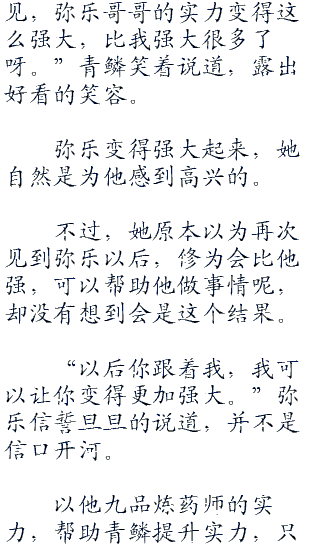 见，弥乐哥哥的实力变得这
么强大，比我强大很多了
呀。”青鳞笑着说道，露出
好看的笑容。
弥乐变得强大起来，她
自然是为他感到高兴的。
不过，她原本以为再次
见到弥乐以后，修为会比他
强，可以帮助他做事情呢，
却没有想到会是这个结果。
“以后你跟着我，我可
以让你变得更加强大。”弥
乐信誓旦旦的说道，并不是
信口开河。
以他九品炼药师的实
力，帮助青鳞提升实力，只